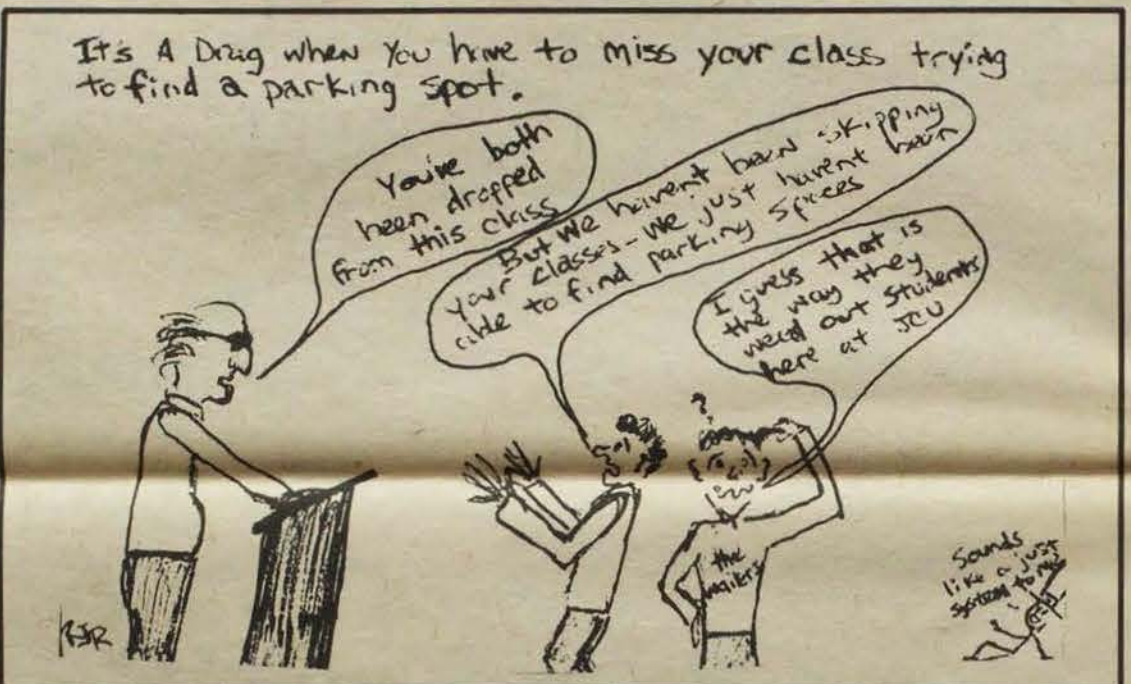 It's A Drag when You have to miss your class trying
to find a parking spot.
You've both
been dropped
from this class
But We haven't been skipping
your classes - We just havent been
able to find parking spaces
I guess that is
the way they
weed out students
here at JCU
the
wailers
Sounds
like a just
system to me
RJR